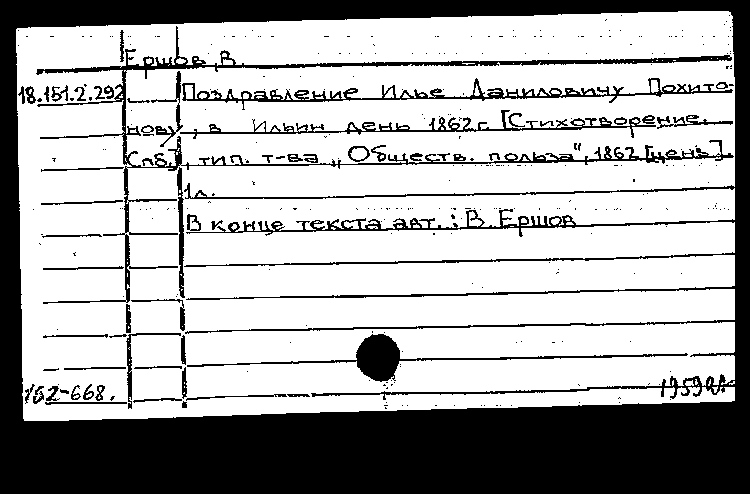 Ершов, В.
18.151.2.292 Поздравление Илье Даниловичу Похито-
нову, в Ильин день 1862 г. [Стихотворение.
Спб.], тип. т-ва „Обществ. польза", 1862 [ценз.].
1 л.
В конце текста авт.: В. Ершов
162-668.